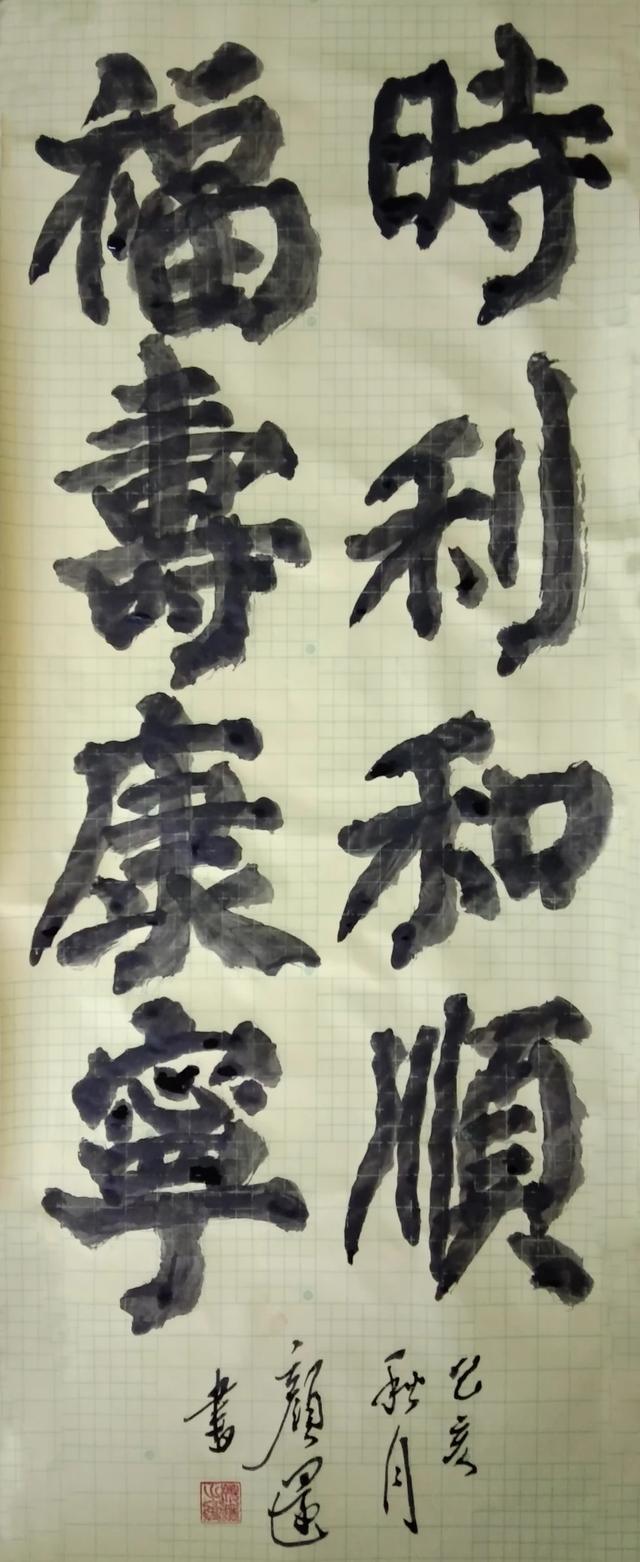 時利和順
福壽康寧
己亥
秋月
顏還
書